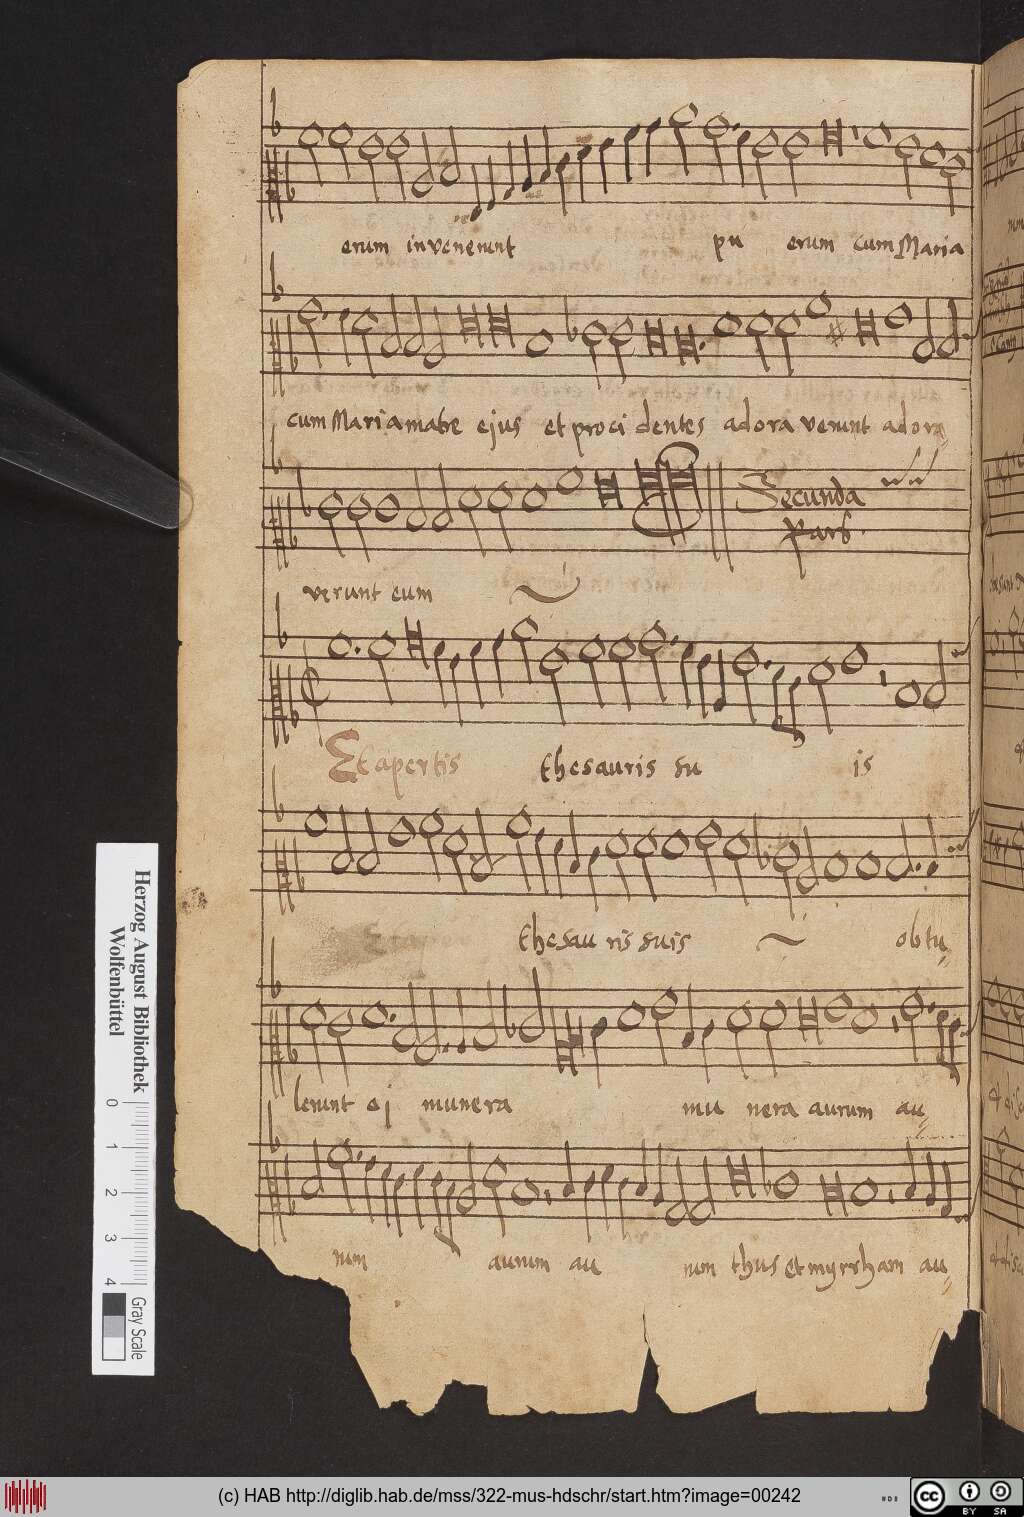 erum invenerunt pu erum cum Maria
cum Maria matre ejus et proci dentes adora verunt adora
Secunda
Pars
verunt eum
Et apertis thesauris su is
thesau ris suis obtu
lerunt ei munera mu nera aurum au
rum aurum au rum thus et myrrham au
Herzog August Bibliothek
Wolfenbüttel
0 1 2 3 4
Gray Scale
(c) HAB http://diglib.hab.de/mss/322-mus-hdschr/start.htm?image=00242
cc BY SA